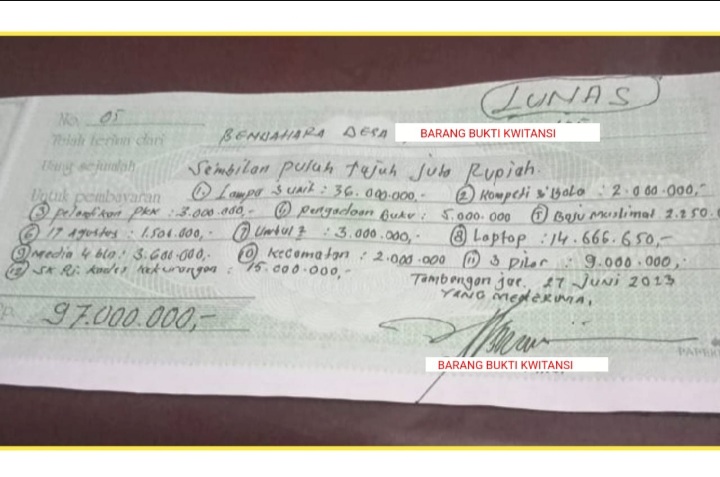 LUNAS
No. 05
Telah terima dari BENDAHARA DESA BARANG BUKTI KWITANSI
Uang sejumlah Sembilan puluh tujuh juta Rupiah.
Untuk pembayaran ① Lampu 3 unit : 36.000.000,- ② Kompeti
③ pelatikan PKK : 3.000.000,- ④ pengadaan Buku : 5.000.000 ⑤ Baju Muslimat 2.250.0
⑥ 17 agustus : 1.500.000,- ⑦ Umbul 2 : 3.000.000,- ⑧ Laptop : 14.666.650,-
⑨ media 4 bln : 3.600.000,- ⑩ kecamatan : 2.000.000 ⑪ 3 pilar : 9.000.000,-
⑫ SK Pj. Kades kekurangan : 15.000.000,-
Tambengan jae. 27 JUNI 2023
YANG MENERIMA,
97.000.000,-
BARANG BUKTI KWITANSI
PAPERL